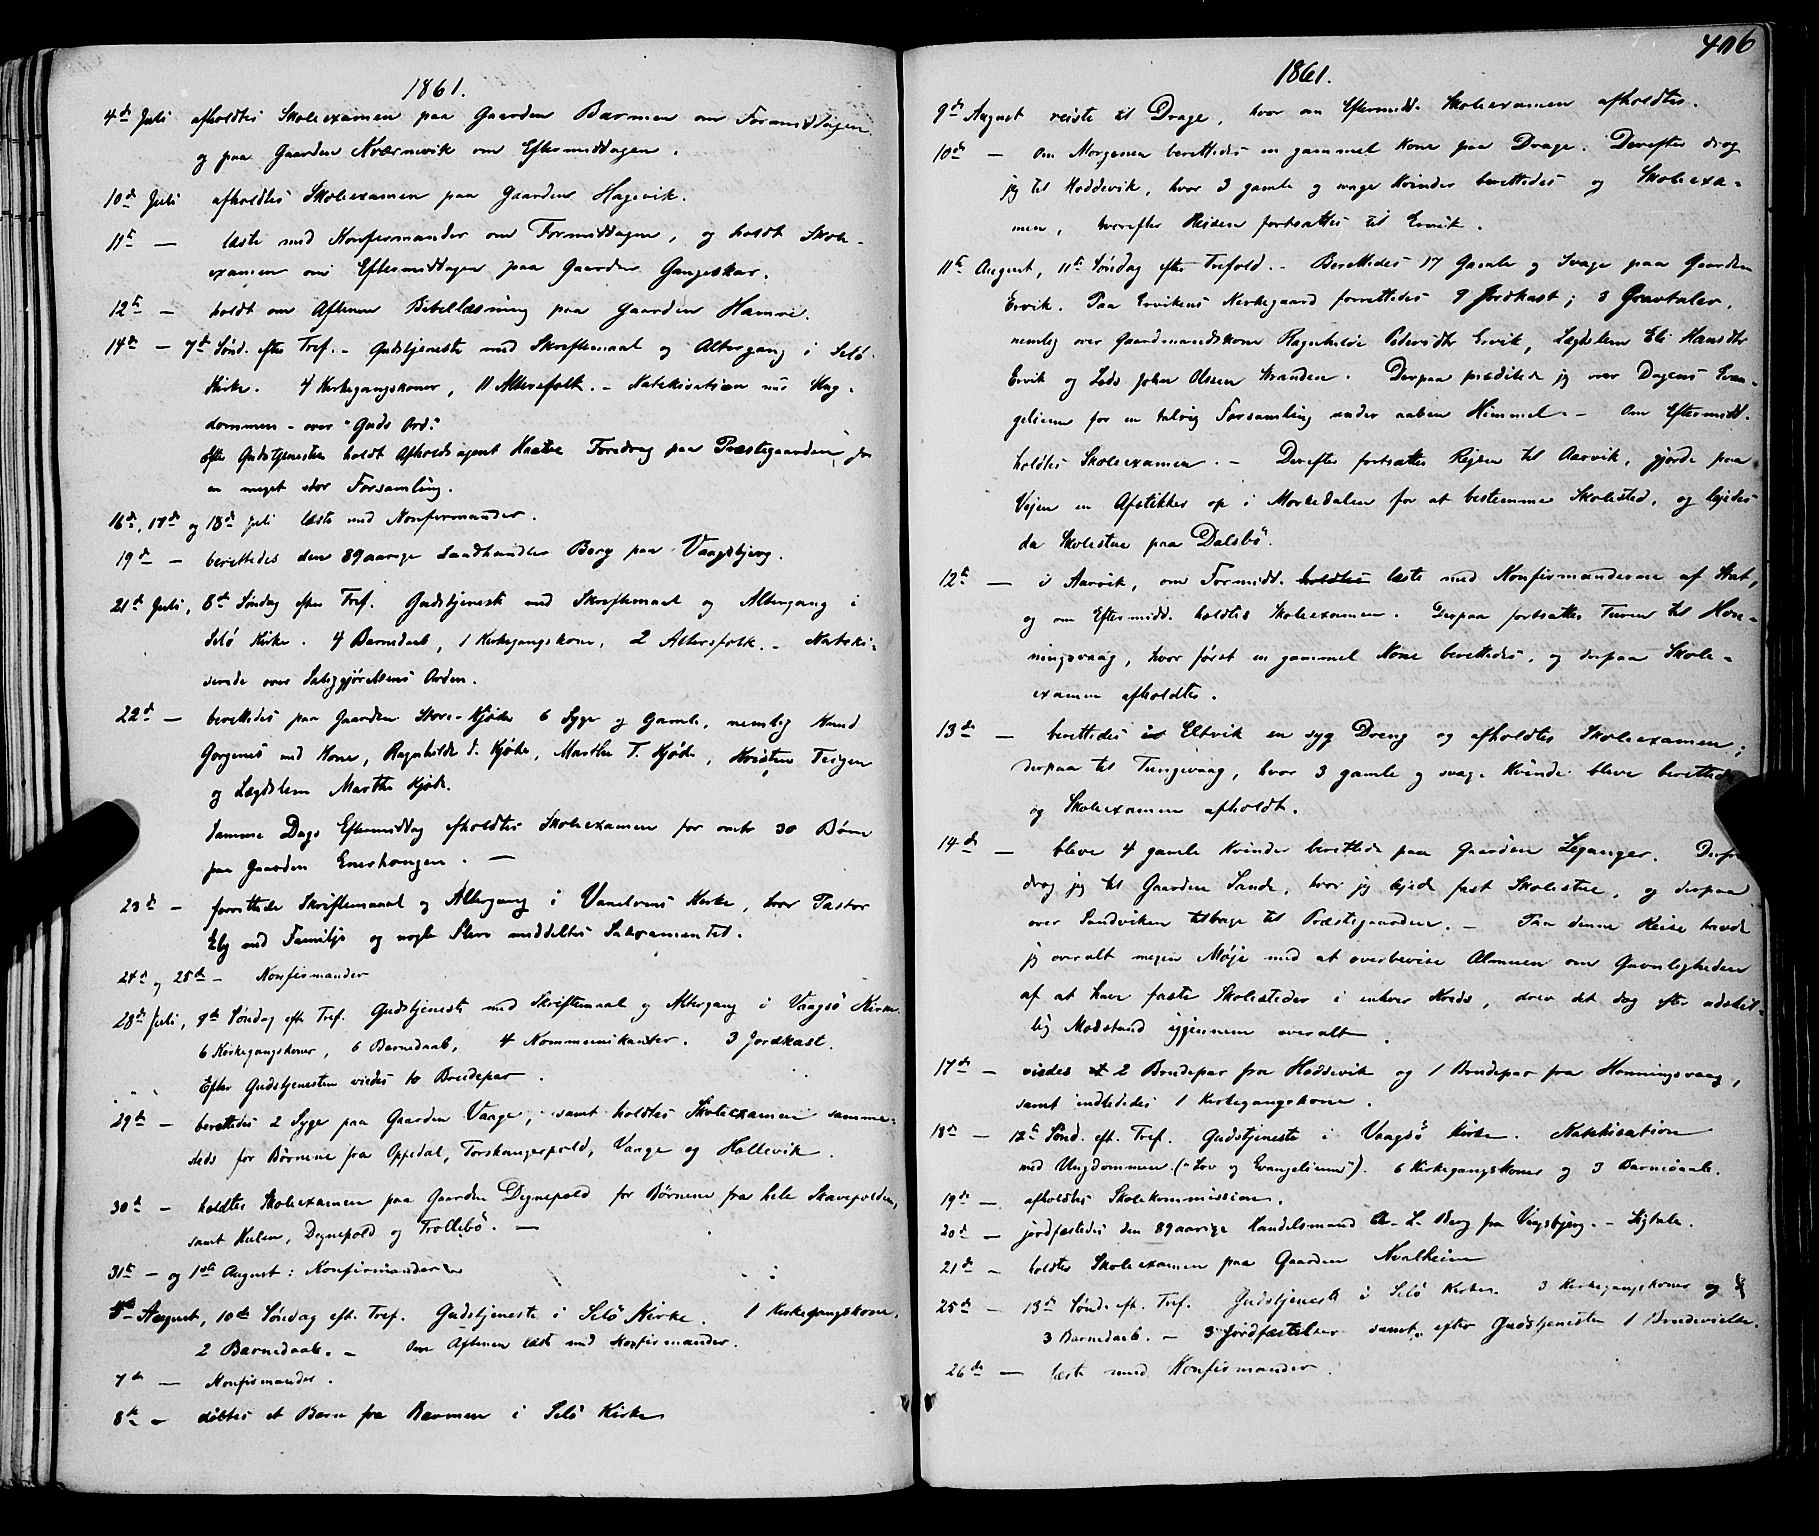 1861.
4de Juli afholdtes Skoleexamen paa Gaarden Barmen om Formiddagen
og paa Gaarden Nværnevik om Eftermiddagen.
10de Juli afholdtes Skoleexamen paa Gaarden Hagevik.
11te — læste med Konfirmander om Formiddagen, og holdt Skole-
examen om Eftermiddagen paa Gaarden Gangeskar.
12te — holdt om Aftenen Bibellæsning paa Gaarden Hamre.
14de — 7de Sønd. efter Tref. – Gudstjeneste med Skriftemaal og Altergang i Selö
Kirke. 4 Kirkegangskoner, 11 Altersfolk. – Katekisation med Ung-
dommen – over "Guds Ord."
Efter Gudstjenesten holdt Afholdsagent Foredrag paa Præstegaarden for
en meget stor Forsamling.
16de, 17de og 18de Juli læste med Konfirmander.
19de — berettedes den 89aarige Landhandler Berg paa Vaagsbjerg.
21de Juli, 8de Søndag efter Tref. Gudstjeneste med Skriftemaal og Altergang i
Selö Kirke. 4 Barnedaab, 1 Kirkegangskone, 2 Altersfolk. – Kateki-
serede over Saliggjørelsens Orden.
22de — berettedes paa Gaarden Store-Kjøde 6 Syge og Gamle, nemlig Knud
med Kone, Ragnhilde d. Kjøde, Marthe T. Kjøde, Kristen Teigen
og Lægdslem Marthe Kjøde.
Samme Dags Eftermiddag afholdtes Skoleexamen for omtr 30 Børn
paa Gaarden Enerhougen. —
23de — forrettede Skriftemaal og Altergang i Vanelvens Kirke, hvor Pastor
med Familje og nogle Flere meddeltes Sakramentet.
24de og 25de – Konfirmander
28de Juli, 9de Søndag eft. Tref. Gudstjeneste med Skriftemaal og Altergang i Vaagsö Kirke.
6 Kirkegangskoner, 6 Barnedaab, 4 Kommunikanter. 3 Jordkast.
Efter Gudstjenesten viedes to Brudepar.
29de — berettedes 2 Syge paa Gaarden Vaage, samt holdtes Skoleexamen samme-
steds for Børnene fra Oppedal, Torskangerpold, Vaage og Hallevik.
30de — holdtes Skoleexamen paa Gaarden Degnepold for Børnene fra hele Skavepolden,
samt Hulen, Degnepold og Trollebö. —
31te — og 1ste August: Konfirmander
August, 10de Søndag eft. Tref. Gudstjeneste i Selö Kirke. 1 Kirkegangskone.
2 Barnedaab. – Om Aftenen læste med Konfirmander.
7de — Konfirmander.
8de – døbtes et Barn fra Barmen i Selö Kirke
406
1861.
9de August reiste til Drage, hvor om Eftermidd. Skoleexamen afholdtes.
10de — Om Morgenen berettedes en gammel Kone paa Drage. Derefter drog
jeg til Hoddevik, hvor 3 gamle og svage Kvinder berettedes og Skoleexa-
men, hvorefter Reisen fortsattes til Ervik.
11te August, 11te Søndag efter Trefold. – Berettedes 17 Gamle og Svage paa Gaarden
Ervik. Paa Ervikens Kirkegaard forrettedes 9 Jordkast; 3 Gravtaler,
nemlig over Gaardmandskone Ragnhilde Pedersdtr Ervik, Lægdslem Eli Hansdtr
Ervik og Lods John Olsen Stranden. Derpaa prædikede jeg over Dagens Evan-
gelium for en talrig Forsamling under aaben Himmel. – Om Eftermidd.
holdtes Skoleexamen. – Derefter fortsattes Rejsen til Aarvik, gjorde paa
Vejen en Afstikker op i Morkedalen for at bestemme Skolested, og lejedes
da Skolestue paa Dalsbö.
12te — i Aarvik, om Formidd. holdtes læste med Konfirmanderne af Stat,
og om Eftermidd. holdtes Skoleexamen. Derpaa fortsattes Turen til Hon-
ningsvaag, hvor først en gammel Kone berettedes, og derpaa Skole-
examen afholdtes.
13de — berettedes i Eltvik en syg Dreng og afholdtes Skoleexamen;
derpaa til Tungevaag, hvor 3 gamle og svage Kvinder bleve berettede
og Skoleexamen afholdt.
14de — bleve 4 gamle Kvinder berettede paa Gaarden Leganger. Derfra
drog jeg til Gaarden Sande, hvor jeg lejede fast Skolestue, og derpaa
over Sandviken tilbage til Præstegaarden. – Paa denne Reise havde
jeg overalt megen Møje med at overbevise Almuen om Gavnligheden
af at have faste Skolesteder i enhver Kreds, drev det dog efter adskil-
lig Modstand igjennem overalt.
17de — viedes 2 Brudepar fra Hoddevik og 1 Brudepar fra Honningsvaag,
samt indlededes 1 Kirkegangskone.
18de — 12te Sønd. eft. Tref. Gudstjeneste i Vaagsö Kirke. Katekisation
med Ungdommen ("Lov og Evangelium"). 6 Kirkegangskoner og 3 Barnedaab.
19de — afholdtes Skolekommission.
20de — jordfæstedes den 89aarige Handelsmand A. L. Berg fra Vaagsbjerg. – Ligtale.
21de — holdtes Skoleexamen paa Gaarden Kvalheim
25de — 13de Sønd. eft. Tref. Gudstjeneste i Selö Kirke. 3 Kirkegangskoner og
3 Barnedaab. – 3 Jordfæstelser samt efter Gudstjenesten 1 Brudevielse.
26de — læste med Konfirmander.